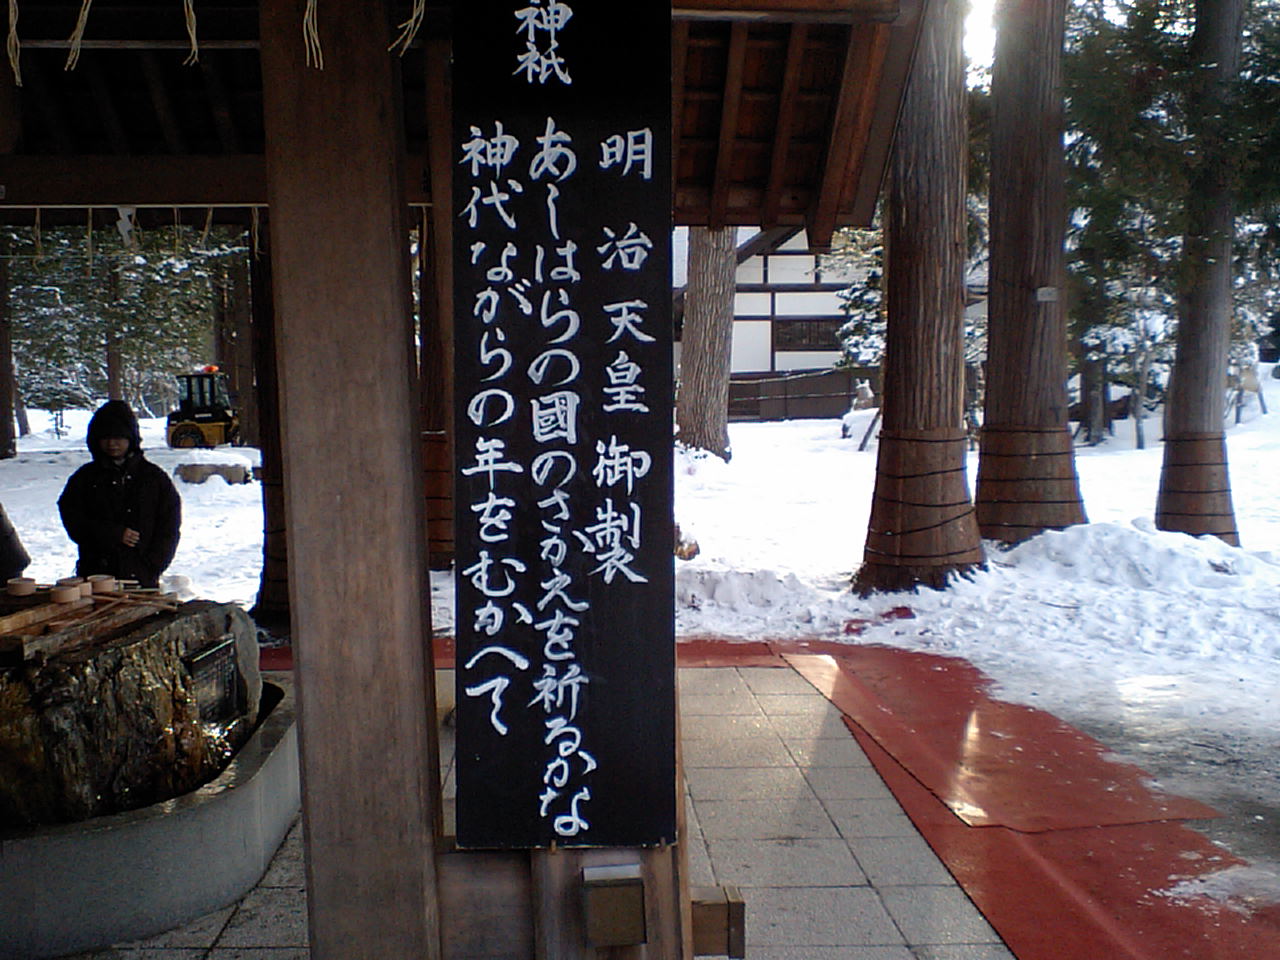 神祇
明治天皇御製
あしはらの國のさかえを祈るかな
神代ながらの年をむかへて